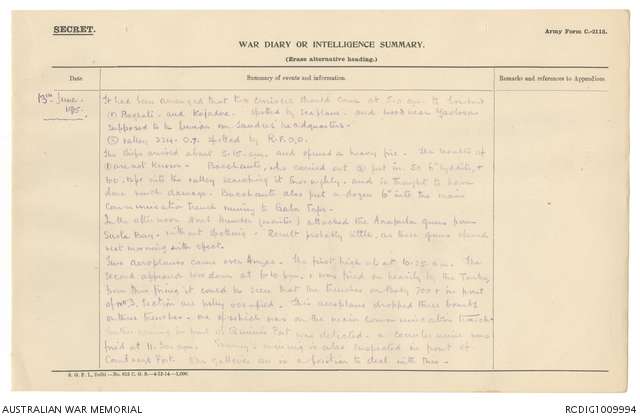 SECRET.
Army Form C.-2118.
WAR DIARY OR INTELLIGENCE SUMMARY.
(Erase alternative heading.)
Date
Summary of events and information.
Remarks and references to Appendices
13th June
1915.
It had been arranged that two cruisers should come at 5.0 am. to bombard
(1) and Kojadere spotted by seaplane and wood near
supposed to be Liman von Sanders headquarters.
(2) valley 224.O.7. spotted by
The ships arrived about 5.15 am. and opened a heavy fire. The results of
(1) are not known. Bacchante, who carried out (2) put in 50 6" lyddite, &
100 into the valley searching it thoroughly, and is thought to have
done much damage. Bacchante also put a dozen 6" into the main
communication trench running to Gaba Tepe.
In the afternoon (monitor) attacked the Anapala guns from
Suvla Bay, without spotting. Result probably little, as these guns opened
next morning with effect.
Two aeroplanes came over Anzac. The first high up at 10.25 am. The
second appeared low down at 6.10 pm. & was fired on heavily by the Turks,
from this firing it could be seen that the trenches on Baby 700 & in front
of No 3. Section are fully occupied. This aeroplane dropped three bombs
on these trenches - one of which was on the main communication trench
in front of Quinn's Post was detected. a counter mine was
fired at 11.30 am. Enemy's mining is also suspected in front of
Courtney's Post. Our galleries are in a position to deal with this.
S. G. P. I., Delhi
AUSTRALIAN WAR MEMORIAL
RCDIG1009994